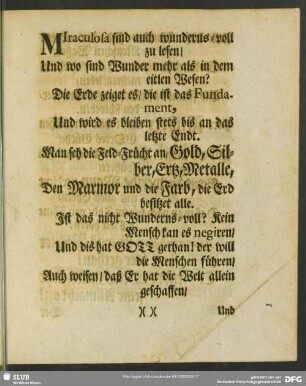 MIraculosa sind auch wunderns-voll
zu lesen/
Und wo sind Wunder mehr als in dem
eitlen Wesen?
Die Erde zeiget es/ die ist das Funda-
ment,
Und wird es bleiben stets bis an das
letzte Endt.
Man seh die Feld-Frücht an, Gold, Sil-
ber, Ertz, Metalle,
Den Marmor und die Farb, die Erd
besitzet alle.
Ist das nicht Wunderns-voll? Kein
Mensch kan es negiren/
Und dis hat GOTT gethan! der will
die Menschen führen/
Auch weisen/ daß Er hat die Welt allein
geschaffen/
)( )(
Und
SLUB
Wir führen Wissen.
gefördert von der
Deutschen Forschungsgemeinschaft
DFG